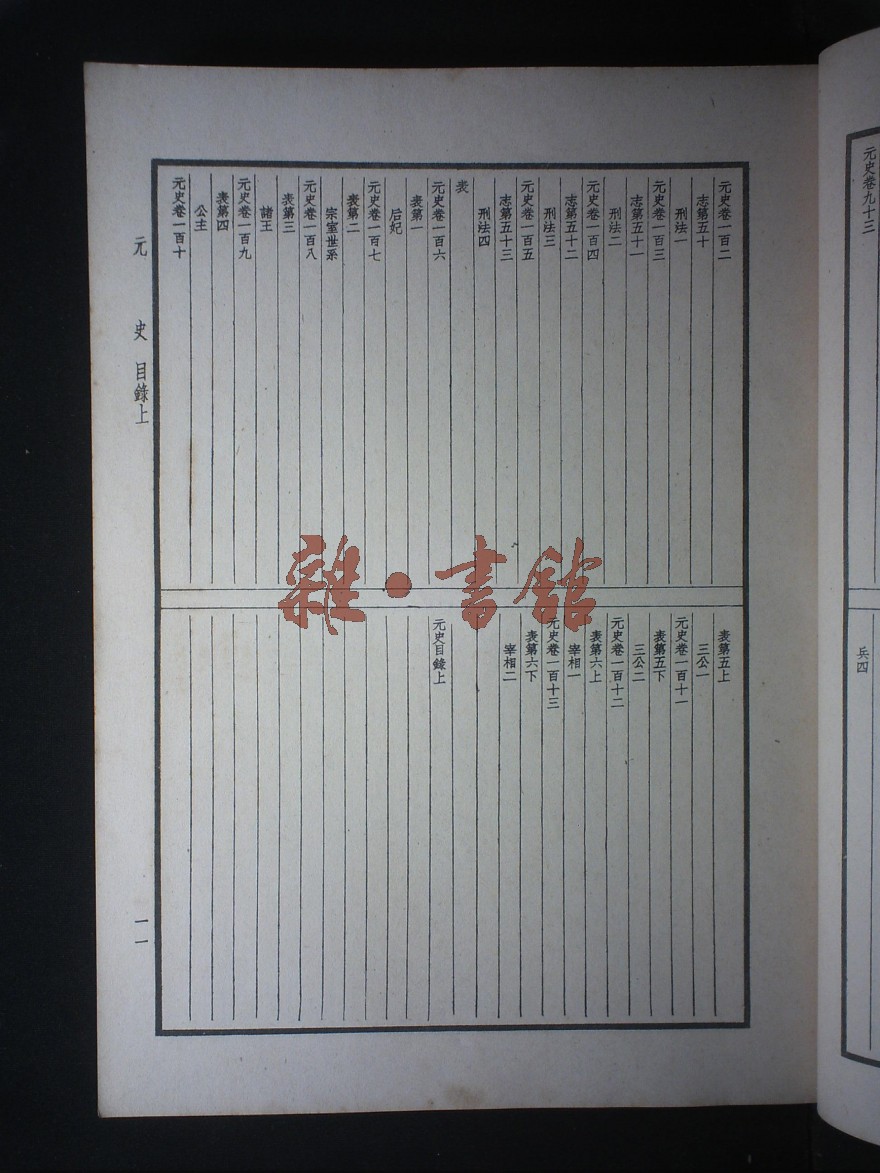 元史卷一百二
志第五十
刑法一
元史卷一百三
志第五十一
刑法二
元史卷一百四
志第五十二
刑法三
元史卷一百五
志第五十三
刑法四
表
元史卷一百六
表第一
后妃
元史卷一百七
表第二
宗室世系
元史卷一百八
表第三
諸王
元史卷一百九
表第四
公主
元史卷一百十
表第五上
三公一
元史卷一百十一
表第五下
三公二
元史卷一百十二
表第六上
宰相一
元史卷一百十三
表第六下
宰相二
元史目錄上
元史 目錄上
一一
元史卷九十三
兵四
雜·書館